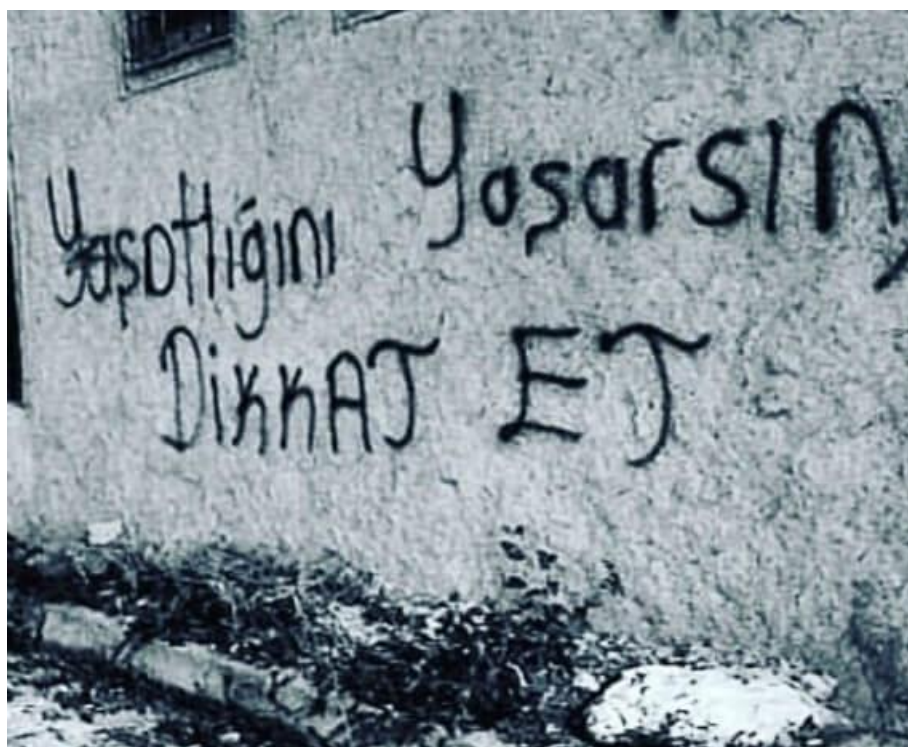 Yaşattığını Yaşarsın,
DİKKAT ET